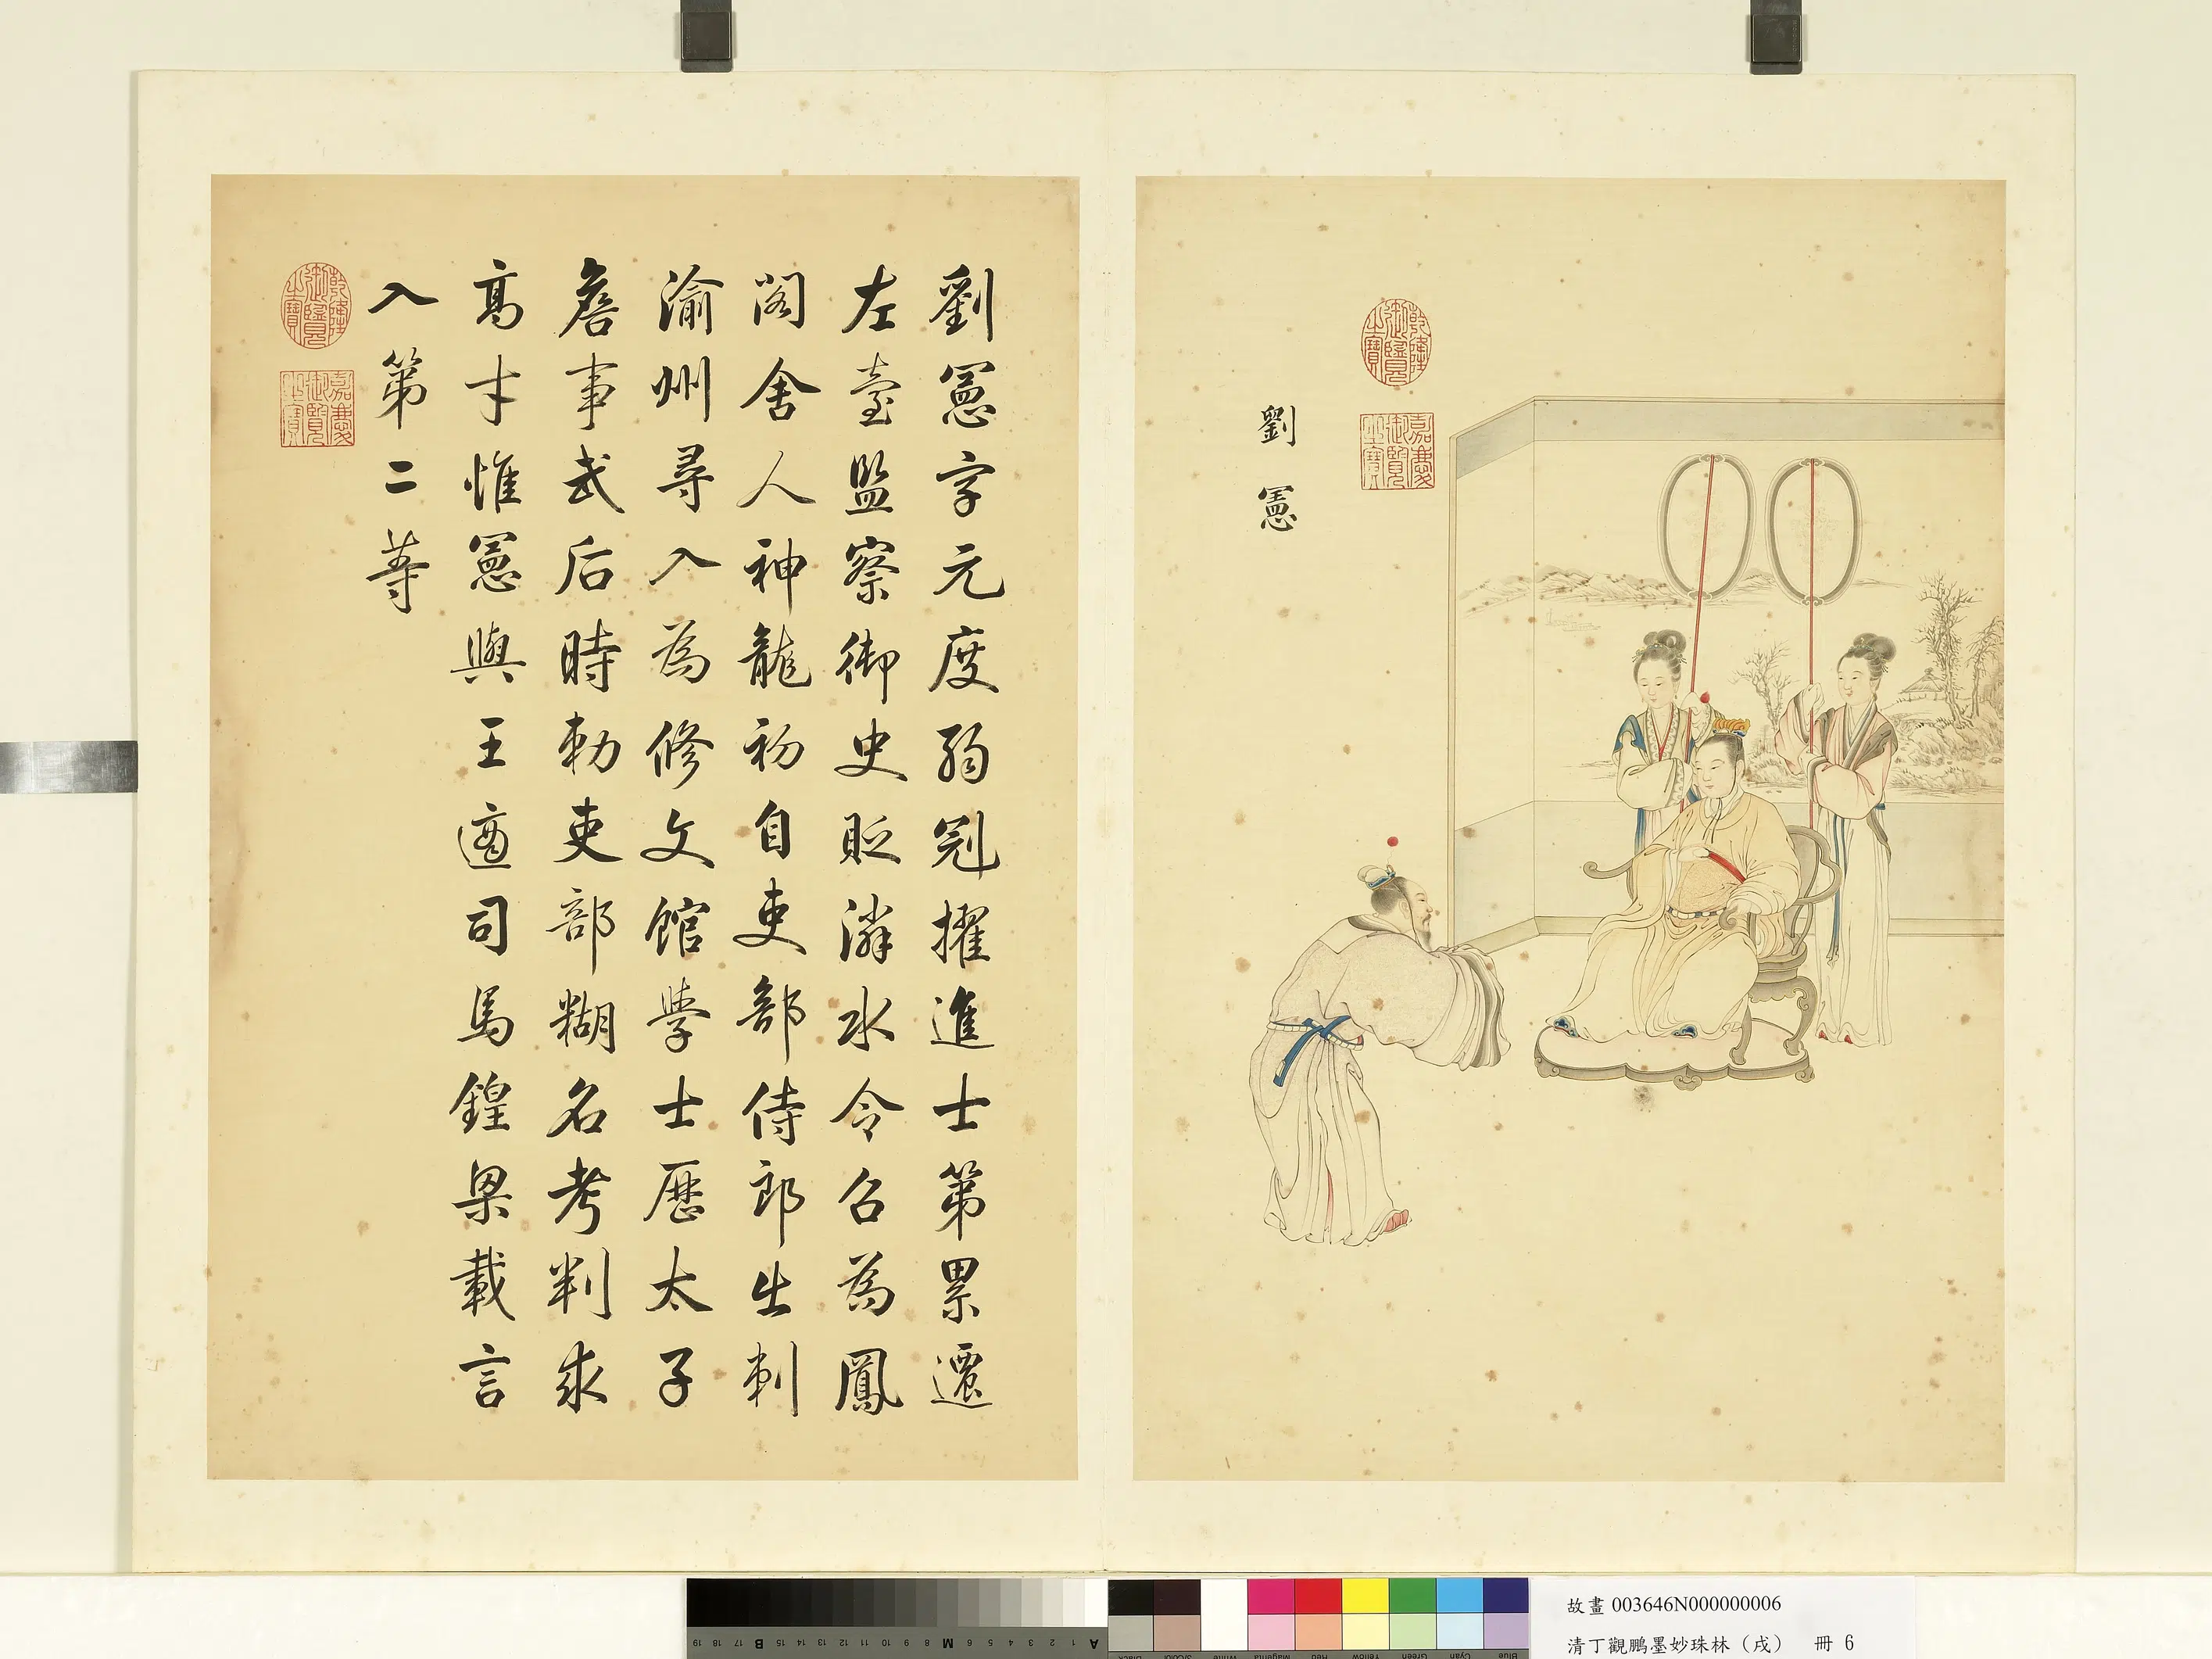 劉憲
乾隆御覽之寶
嘉慶御覽之寶
劉憲字元度弱冠擢進士第累遷
左臺監察御史貶潾水令召為鳳
閣舍人神龍初自吏部侍郎出刺
渝州尋入為修文館學士歷太子
詹事武后時勅吏部糊名考判求
高才惟憲與王適司馬鍠梁載言
入第二等
乾隆御覽之寶
嘉慶御覽之寶
19 18 17 B 15 14 13 12 11 10 9 8 M 6 5 4 3 2 1 A
3/Color White Magenta Red Yellow Green Cyan Blue
故畫 003646N000000006
清丁觀鵬墨妙珠林（戌） 冊 6